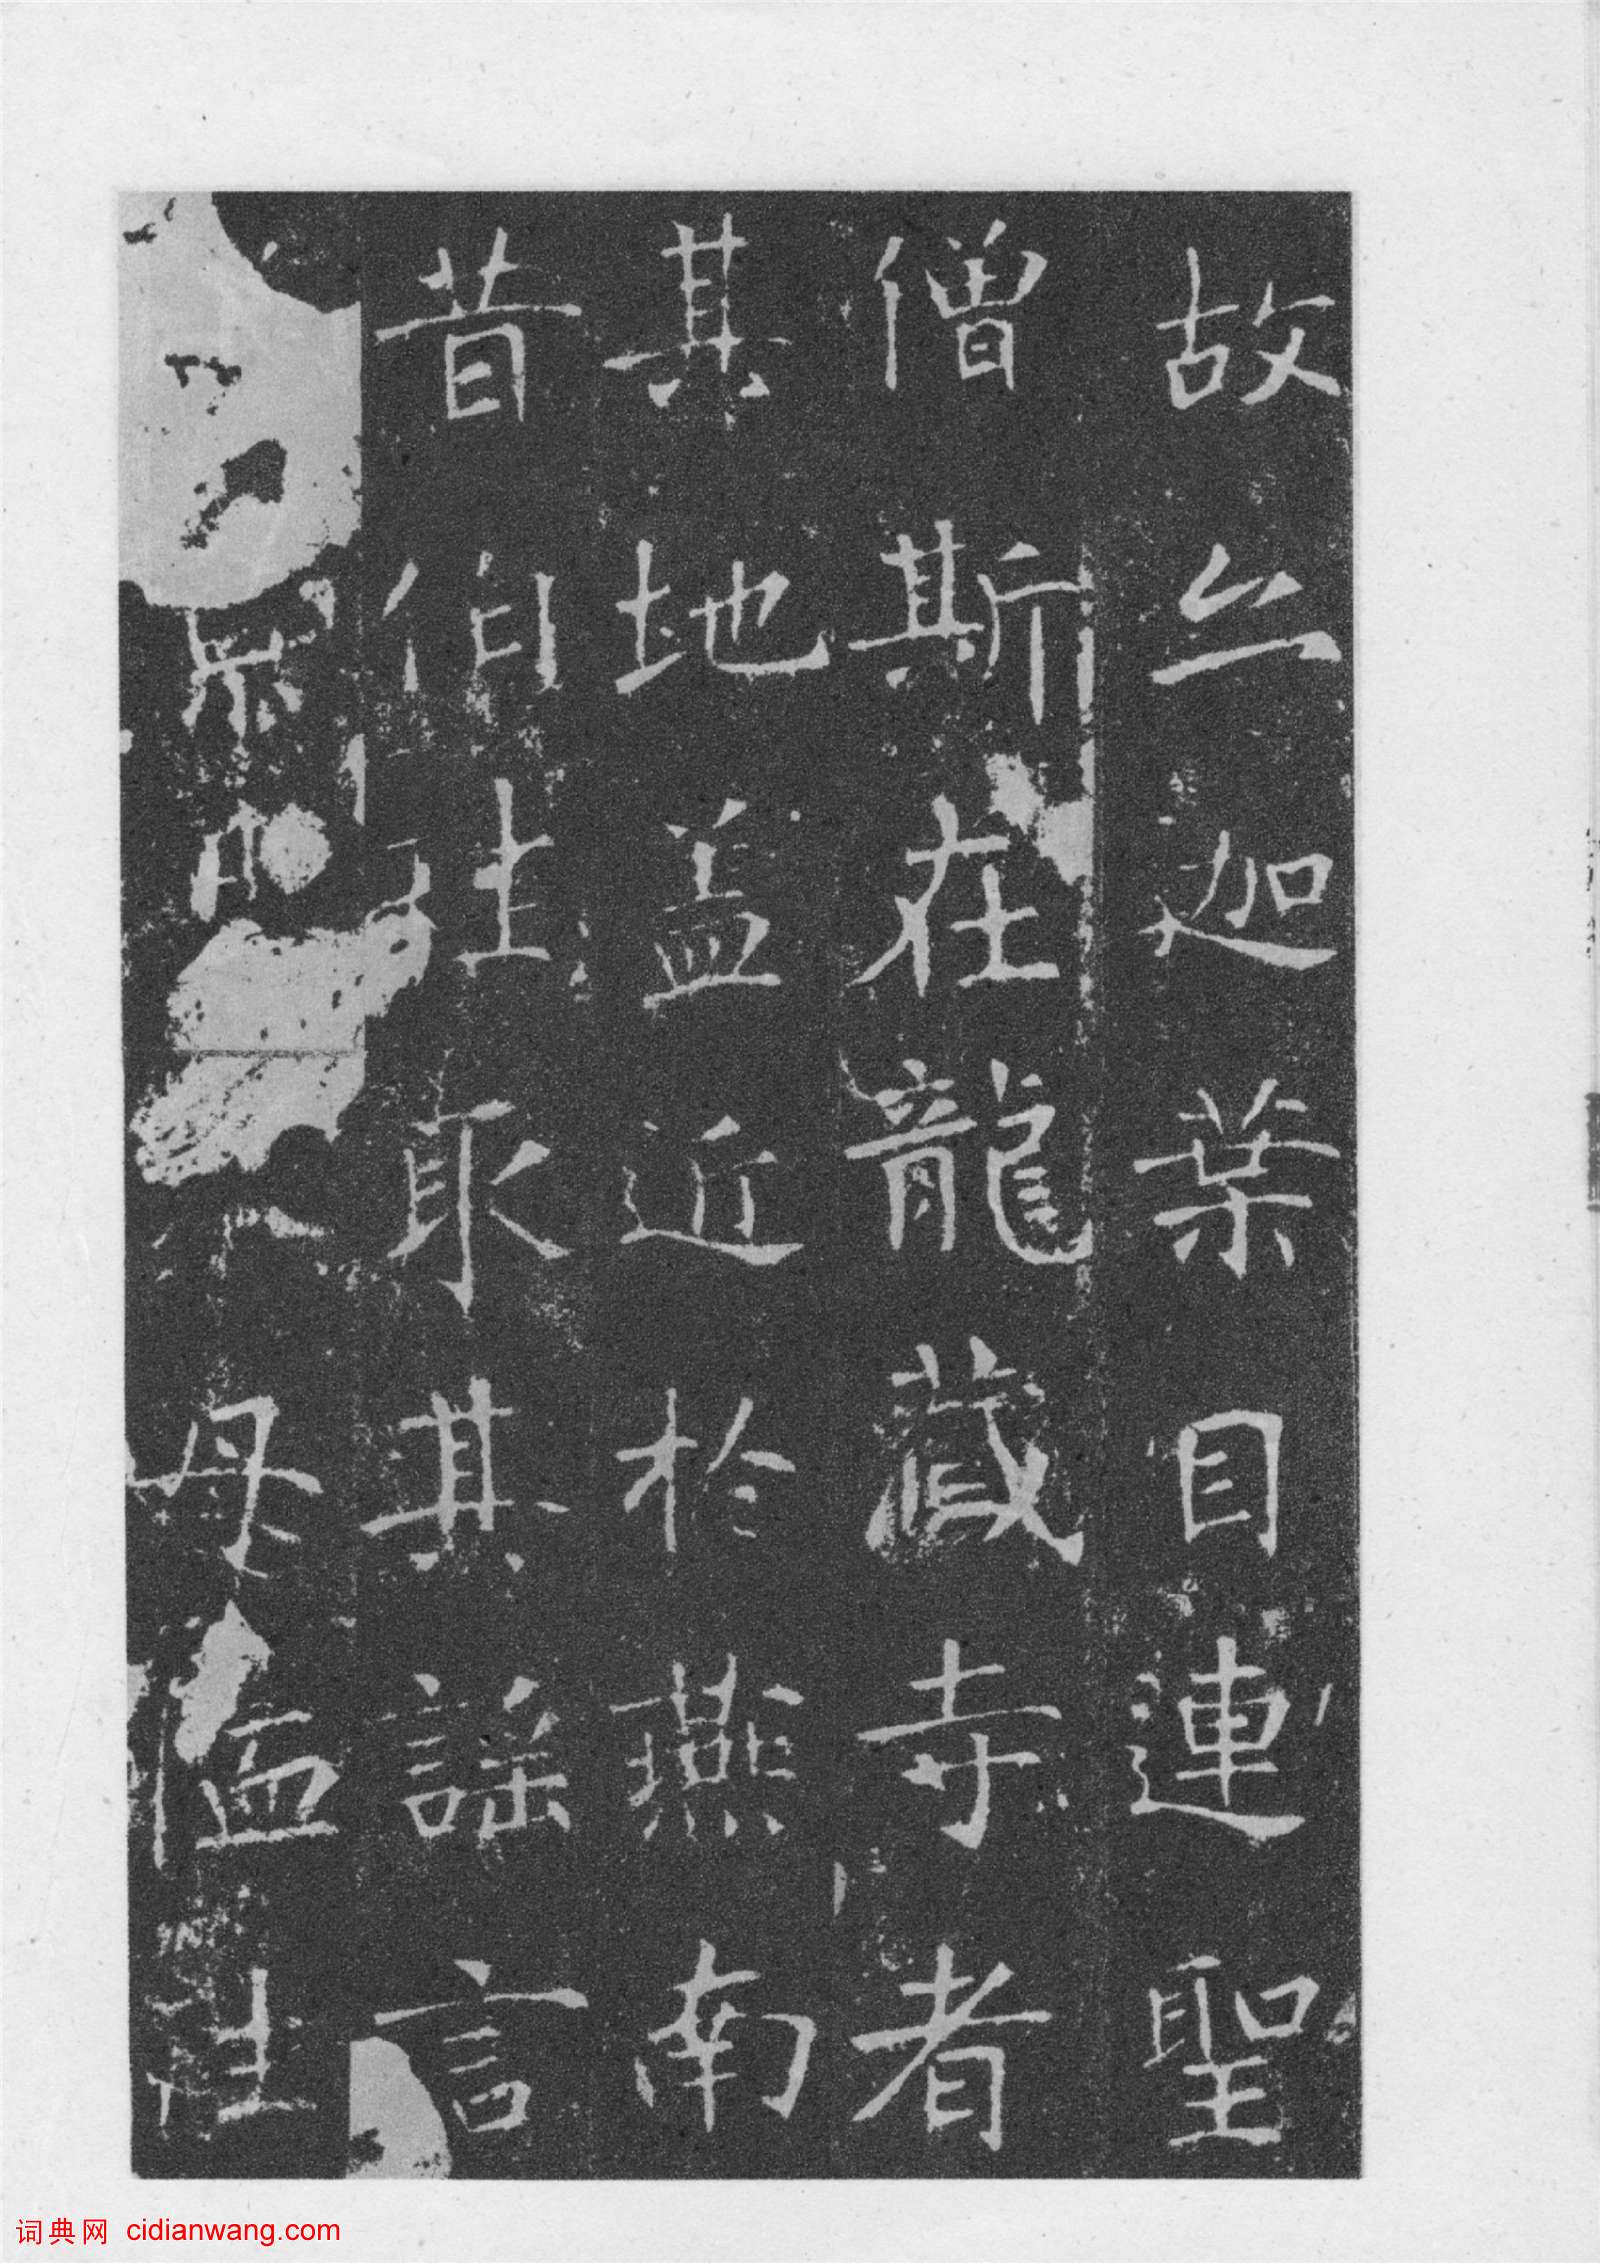 故以迦葉目連聖
僧斯在龍藏寺者
其地盖近於燕南
昔伯珪取其謠言
母恤往
词典网 cidianwang.com